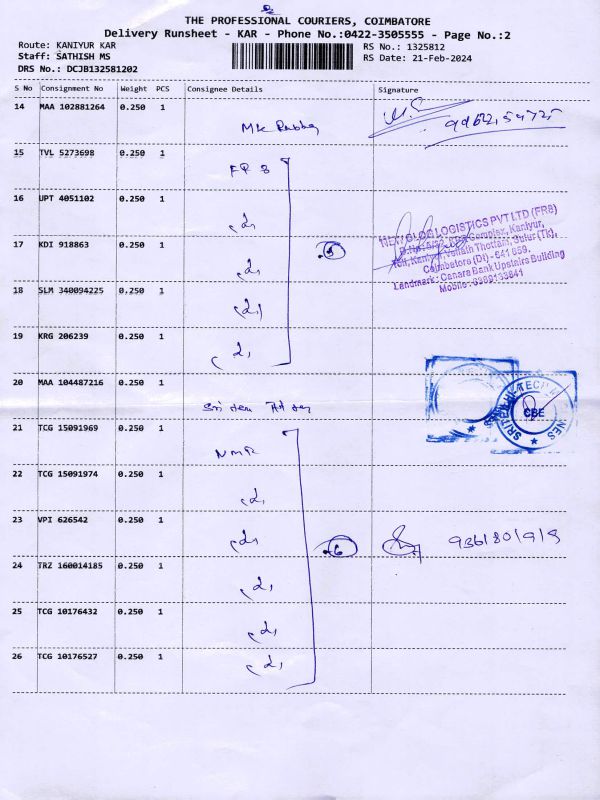 THE PROFESSIONAL COURIERS, COIMBATORE
Delivery Runsheet - KAR - Phone No.:0422-3505555 - Page No.:2
Route: KANIYUR KAR
RS No.: 1325812
Staff: SATHISH MS
RS Date: 21-Feb-2024
DRS No.: DCJB132581202
S No Consignment No Weight PCS Consignee Details Signature
14 MAA 102881264 0.250 1
15 TVL 5273698 0.250 1
16 UPT 4051102 0.250 1
17 KDI 918863 0.250 1
LOGISTICS PVT LTD (FR8)
Complex, Kaniyur,
Thottam, Sulur (Tk),
Coimbatore (Dt) - 641 659.
Landmark : Canara Bank Upstairs Building
18 SLM 340094225 0.250 1
19 KRG 206239 0.250 1
20 MAA 104487216 0.250 1
CBE
21 TCG 15091969 0.250 1
NMR
22 TCG 15091974 0.250 1
23 VPI 626542 0.250 1
6
24 TRZ 160014185 0.250 1
25 TCG 10176432 0.250 1
26 TCG 10176527 0.250 1